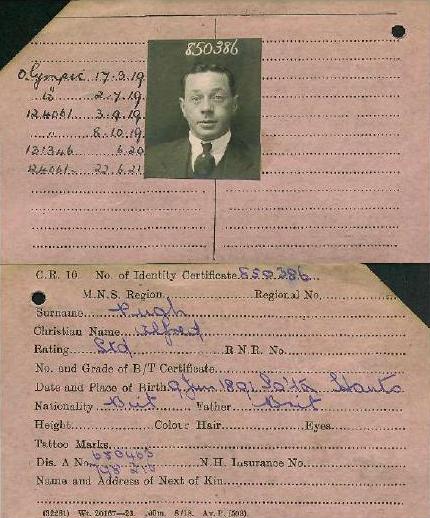 850386
Olympic 17.3.19
" 2.7.19
124061 3.9.19
" 8.10.19
131346 6.20
124061 22.6.21
C.R. 10. No. of Identity Certificate 850386
M.N.S. Region Regional No.
Surname Pugh
Christian Name Alfred
Rating Std R.N.R. No.
No. and Grade of B/T Certificate
Date and Place of Birth 9 Jun 1891 So'ton Hants
Nationality Brit Father Brit
Height Colour Hair Eyes
Tattoo Marks
Dis. A No. 680463 N.H. Insurance No.
Name and Address of Next of Kin
(32281) Wt. 20167—23. 8/18. Av. P. (503).